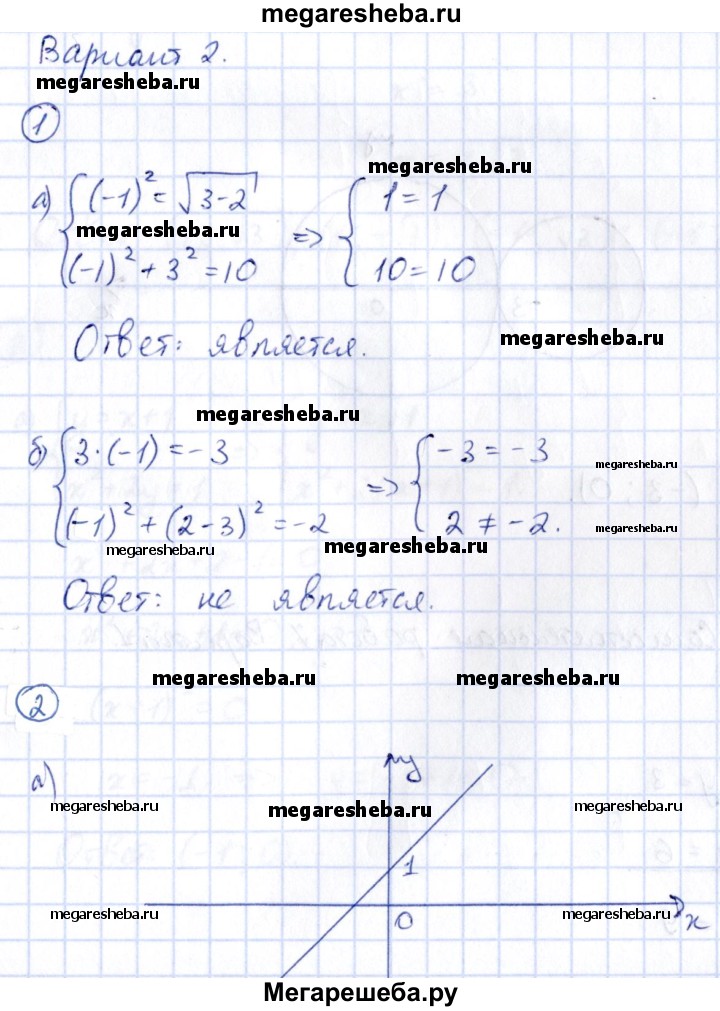 megaresheba.ru
Вариант 2.
megaresheba.ru
1
megaresheba.ru
а) { (-1)² = √3-2 => { 1 = 1
megaresheba.ru
(-1)² + 3² = 10 10 = 10
Ответ: является.
megaresheba.ru
megaresheba.ru
б) { 3·(-1) = -3 => { -3 = -3
megaresheba.ru
(-1)² + (2-3)² = -2 2 ≠ -2.
megaresheba.ru
megaresheba.ru
megaresheba.ru
Ответ: не является.
megaresheba.ru megaresheba.ru
2
а) y
megaresheba.ru megaresheba.ru megaresheba.ru
1
megaresheba.ru 0 megaresheba.ru x
Мегарешеба.ру